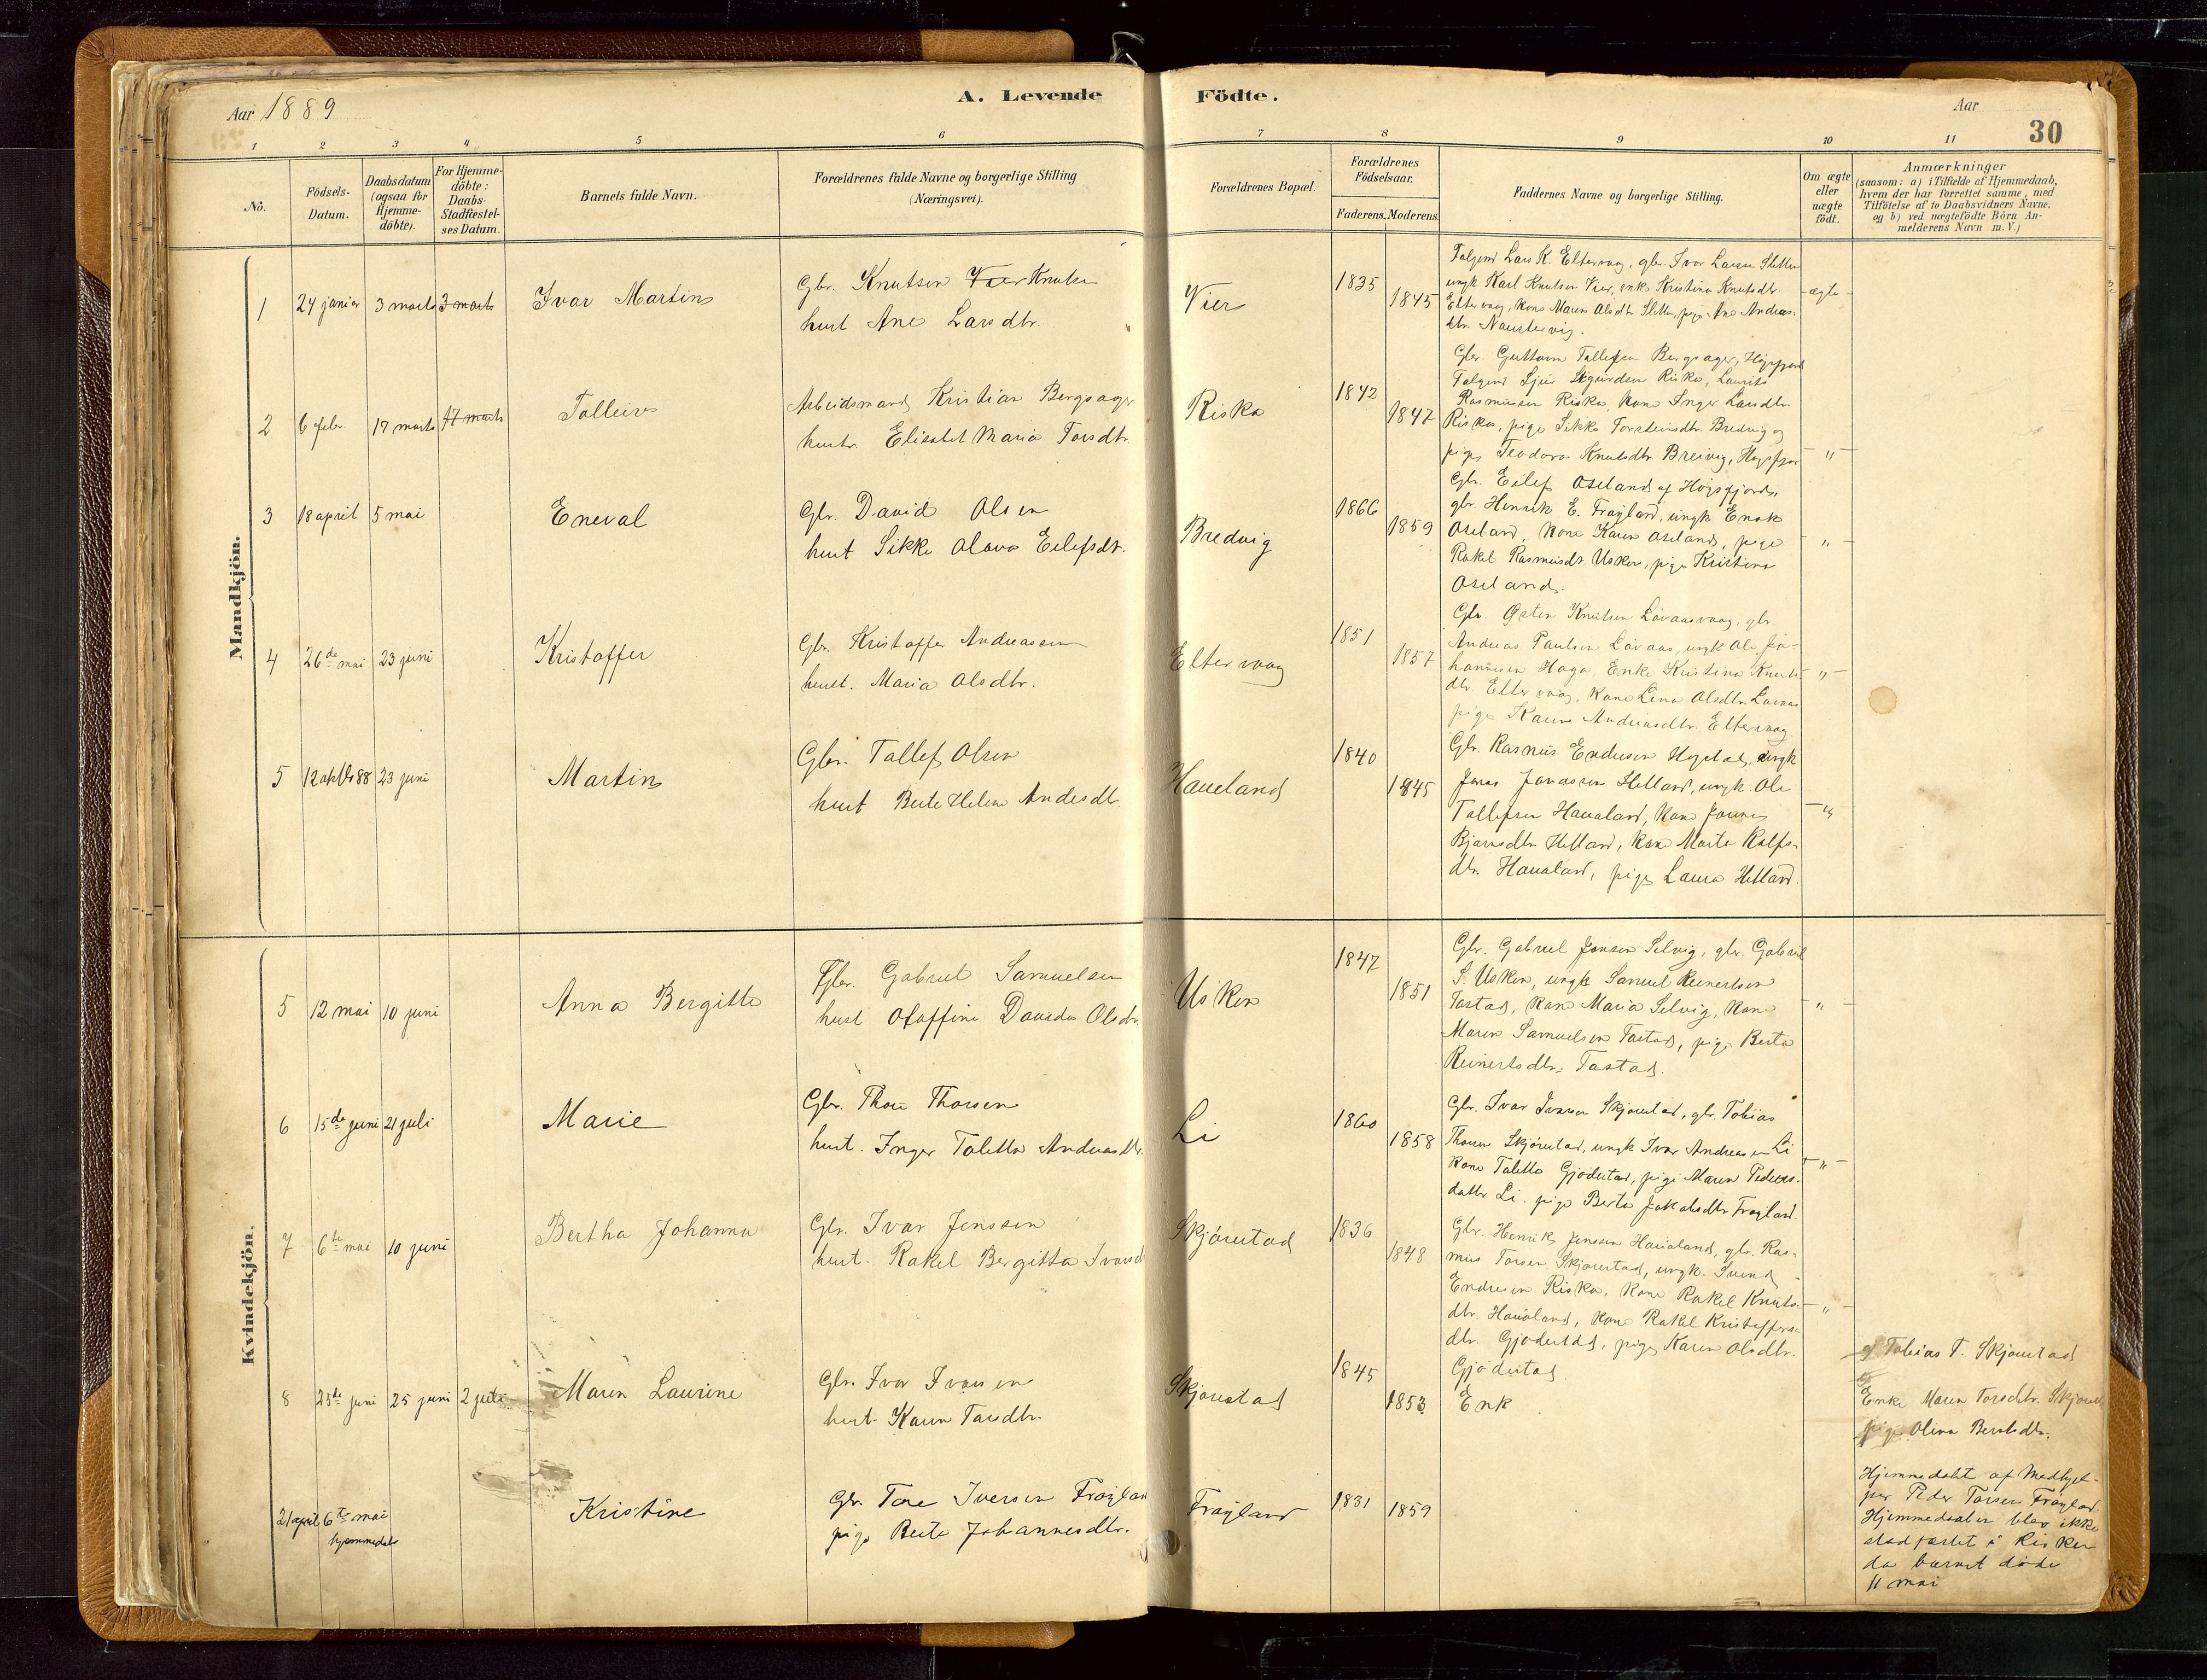 Aar 1889
A. Levende Födte.
Aar
30
1 2 3 4 5 6 7 8 9 10 11
No.
Födsels-Datum.
Daabsdatum (ogsaa for Hjemme-döbte).
For Hjemme-döbte: Daabs-Stadfæstel-ses Datum.
Barnets fulde Navn.
Forældrenes fulde Navne og borgerlige Stilling (Næringsvei).
Forældrenes Bopæl.
Forældrenes Födselsaar.
Faderens. Moderens.
Faddernes Navne og borgerlige Stilling.
Om ægte eller uægte födt.
Anmærkninger
(saasom: a) i Tilfælde af Hjemmedaab,
hvem der har forrettet samme, med
Tilföielse af to Daabsvidners Navne.
og b) ved uægtefödte Börn An-
melderens Navn m. V.)
Mandkjön.
1 24 januar 3 marts 3 marts Ivar Martin
Gbr. Knutsen Vier Knutsen
hust Ane Larsdtr.
Vier 1835 1845
Lars K. Eltervaag, gbr. Ivar Larsen Sletten
ungk Karl Knutsen Vier, enke Kristina Knutsdtr
Eltervaag, kone Maren Olsdtr Sletten, pige Ane Andreas-
dtr. Naustervig.
ægte
2 6 febr. 17 marts 17 marts Tolleiv
Arbeidsmand Kristian Bergsager
hustr. Elisabet Maria Torsdtr.
Riska 1842 1847
Gbr. Guttorm Tollefsen Bergsager, Høgsfjord
Sigurdsen Riska, Laurits
Rasmusen Riska, kone Inger Larsdtr.
Riska, pige Sikke Torsteinsdtr. Bredvig og
pige Teodora Knutsdtr. Breivig, Høgsfjor
"
3 18 april 5 mai Eneval
Gbr. David Olsen
hust Sikke Olava Eilefsdt.
Bredvig 1866 1859
Gbr. Eilef Oseland af Høgsfjord,
gbr. Henrik E. Frøyland, ungk Enok
Oseland, kone Karen Oseland, pige
Rakel Rasmusdt. Usken, pige Kristina
Oseland.
"
4 26de mai 23 juni Kristoffer
Gbr. Kristoffer Andreassen
hust. Maria Olsdtr.
Eltervaag 1851 1857
Gbr. Østen Knutsen Lovaasvaag, gbr
Andreas Paulsen Lovaas, ungk Ole Jo-
hannesen Haga, Enke Kristina Knuts
dtr. Eltervaag, kone Lena Olsdtr. Lovaas
pige Karen Andreasdtr. Eltervaag
"
5 12 88 23 juni Martin
Gbr. Tallef Olsen
hust Berte Helene Andersdt.
Haueland 1840 1845
Gbr. Rasmus Endresen Hogstad, ungk
Jonas Jonassen Helland, ungk. Ole
Tollefsen Haualand, kone
Bjørnsdtr Helland, kone Marta Rolfs-
dtr. Haualand, pige Laura Helland.
"
Kvindekjön.
5 12 mai 10 juni Anna Bergitte
Gbr. Gabriel Samuelsen
hust Olaffine Davida Olsdtr.
Usken 1847 1851
Gbr. Gabriel Jonsen Selvig, gbr. Gabriel
S. Usken, ungk Samuel Reinertsen
Tastad, kone Maria Selvig, kone
Maren Samuelsen Tastad, pige Berta
Reinertsdtr. Tastad.
"
6 15de juni 21 juli Marie
Gbr. Thore Thorsen
hust. Inger Taletta Andreasdtr.
Li 1860 1858
Gbr. Ivar Ivarsen Skjørestad, gbr. Tobias
Thorsen Skjørestad, ungk Ivar Andreasen Li
kone Taletta Gjødestad, pige Maren Peders-
datter Li. pige Berta Jakobsdtr Frøyland.
"
7 6te mai 10 juni Bertha Johanna
Gbr. Ivar Jonssen
hust. Rakel Bergitta Ivarsd
Skjørestad 1836 1848
Gbr. Henrik Jonsen Haualand, gbr. Ras-
mus Torsen Skjørestad, ungk. Svend
Endresen Riska, kone Rakel Knuts-
dtr. Haualand, kone Rakel Kristoffers-
dtr. Gjødestad, pige Karen Olsdtr.
Gjødestad
"
8 25de juni 25 juni 2 juli Maren Laurine
Gbr. Ivar Ivarsen
hust. Karen Taredtr.
Skjørestad 1845 1853
Enk
af Tobias T. Skjørestad
Enke Maren Torsdtr. Skjørest
pige Olina Berntsdtr.
21 april 6te mai hjemmedøbt Kristine
Gbr. Tore Iversen Frøylan
pige Berte Johannesdtr.
Frøyland 1831 1859
Hjemmedøbt af
Peder Torsen Frøyland.
Hjemmedaaben blev ikke
stadfæstet i Kirken
da barnet døde
11 mai